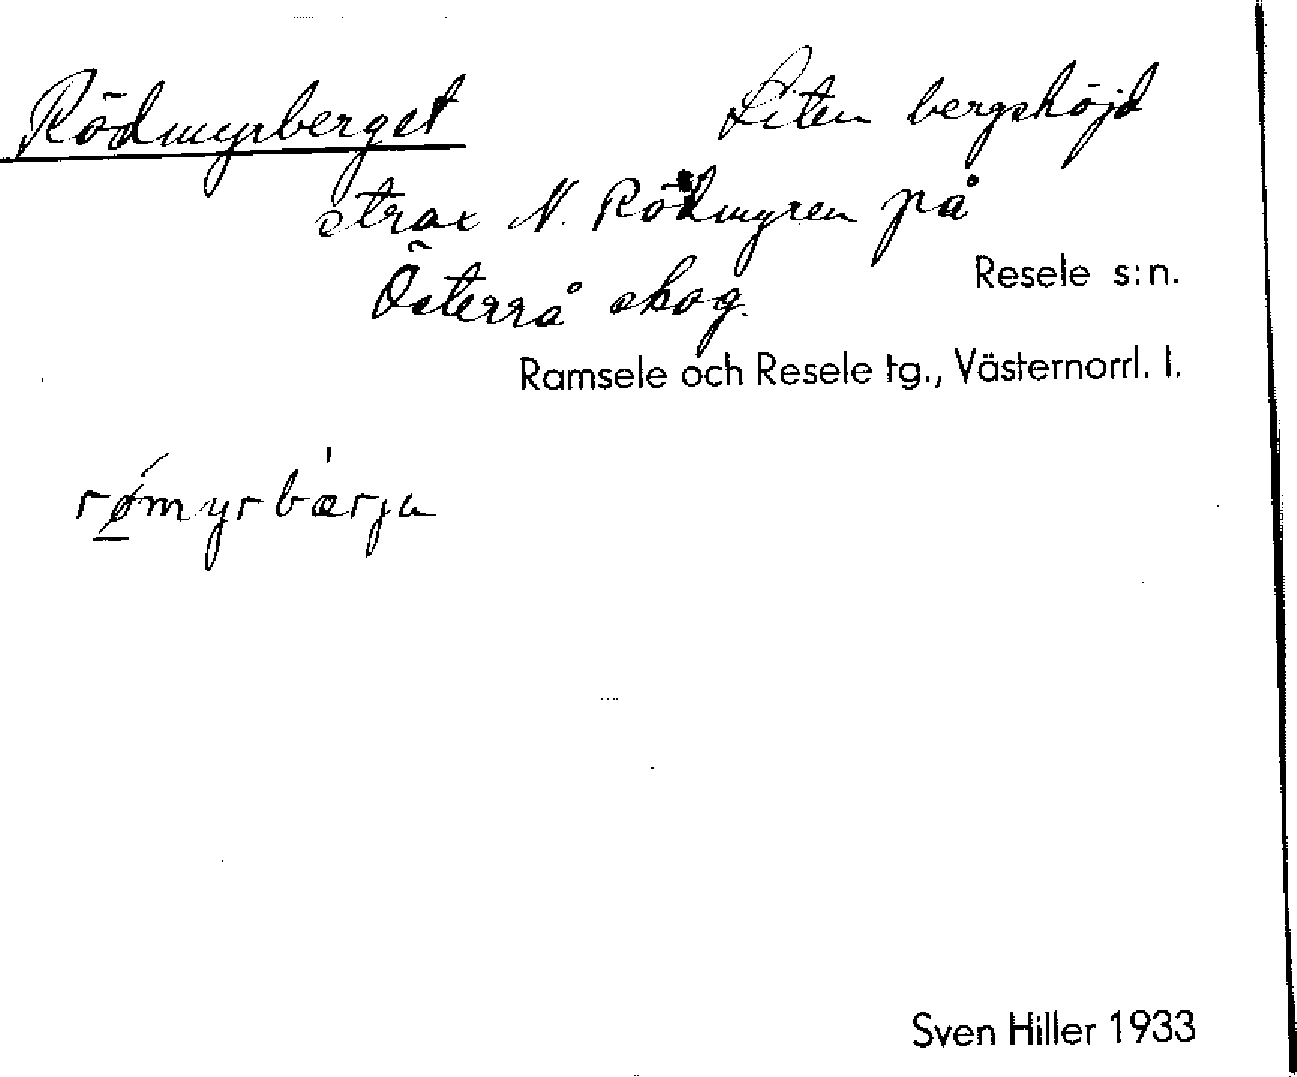 Rödmyrberget Liten bergshöjd
strax N. Rödmyren på
Österrå skog.
Resele s:n.
Ramsele och Resele tg., Västernorrl. l.
rǿ̲myrbærjа
Sven Hiller 1933